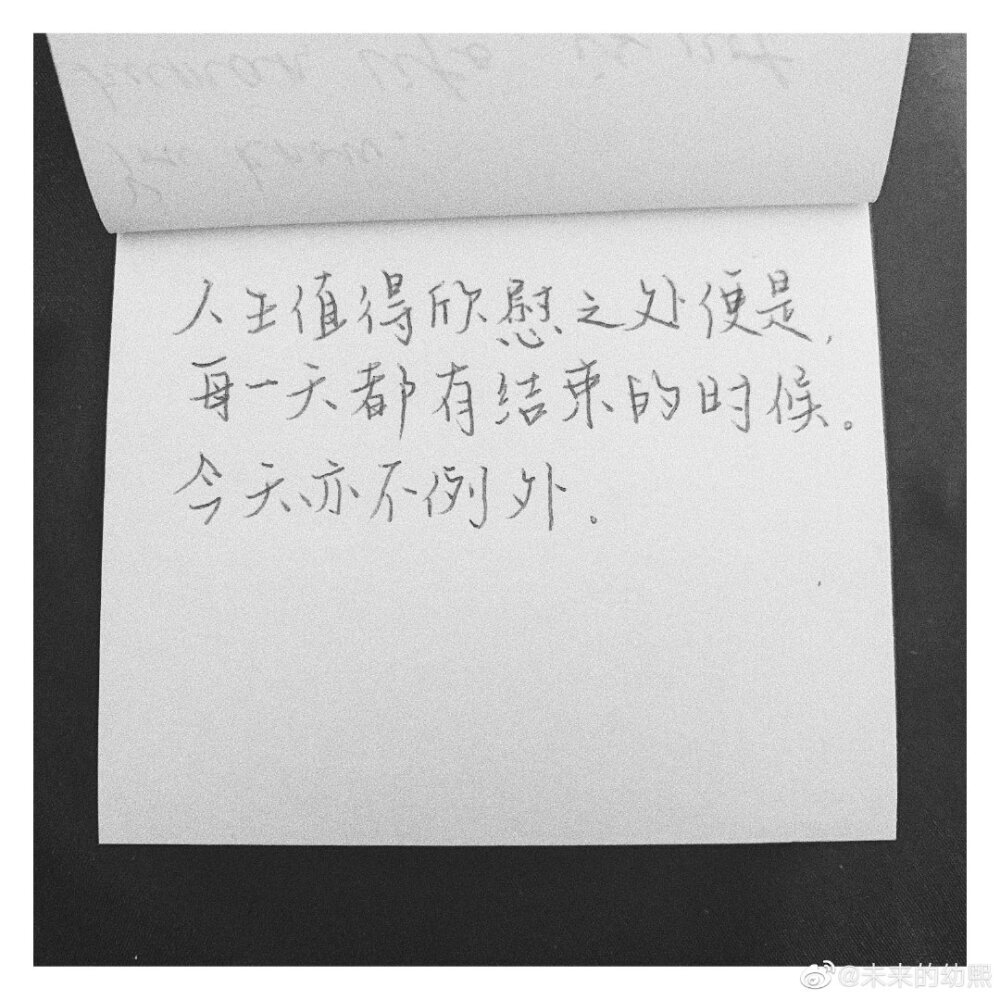 人生值得欣慰之处便是，
每一天都有结束的时候。
今天亦不例外。
@未来的幼熙